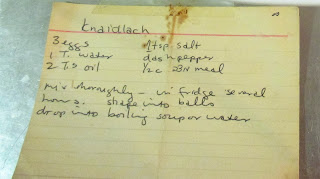 Knaidlach
3 eggs 1 tsp salt
1 T. water dash pepper
2 T.s oil 1/2 c meal
Mix thoroughly – in fridge several
hours. shape into balls
drop into boiling soup or water